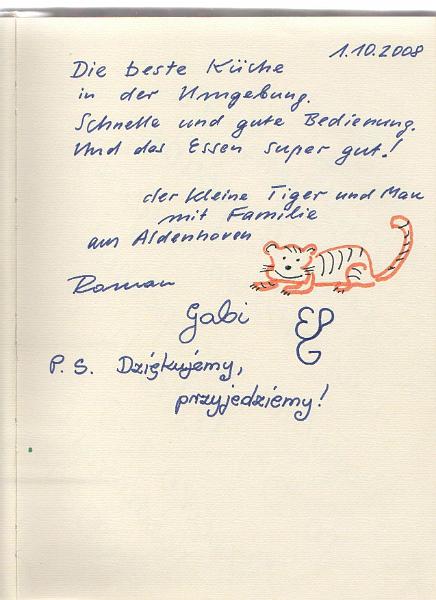 1.10.2008
Die beste Küche
in der Umgebung.
Schnelle und gute Bedienung.
Und das Essen super gut!
der kleine Tiger und Max
mit Familie
aus Aldenhoven
Roman
Gabi
P.S. Dziękujemy,
przyjedziemy!